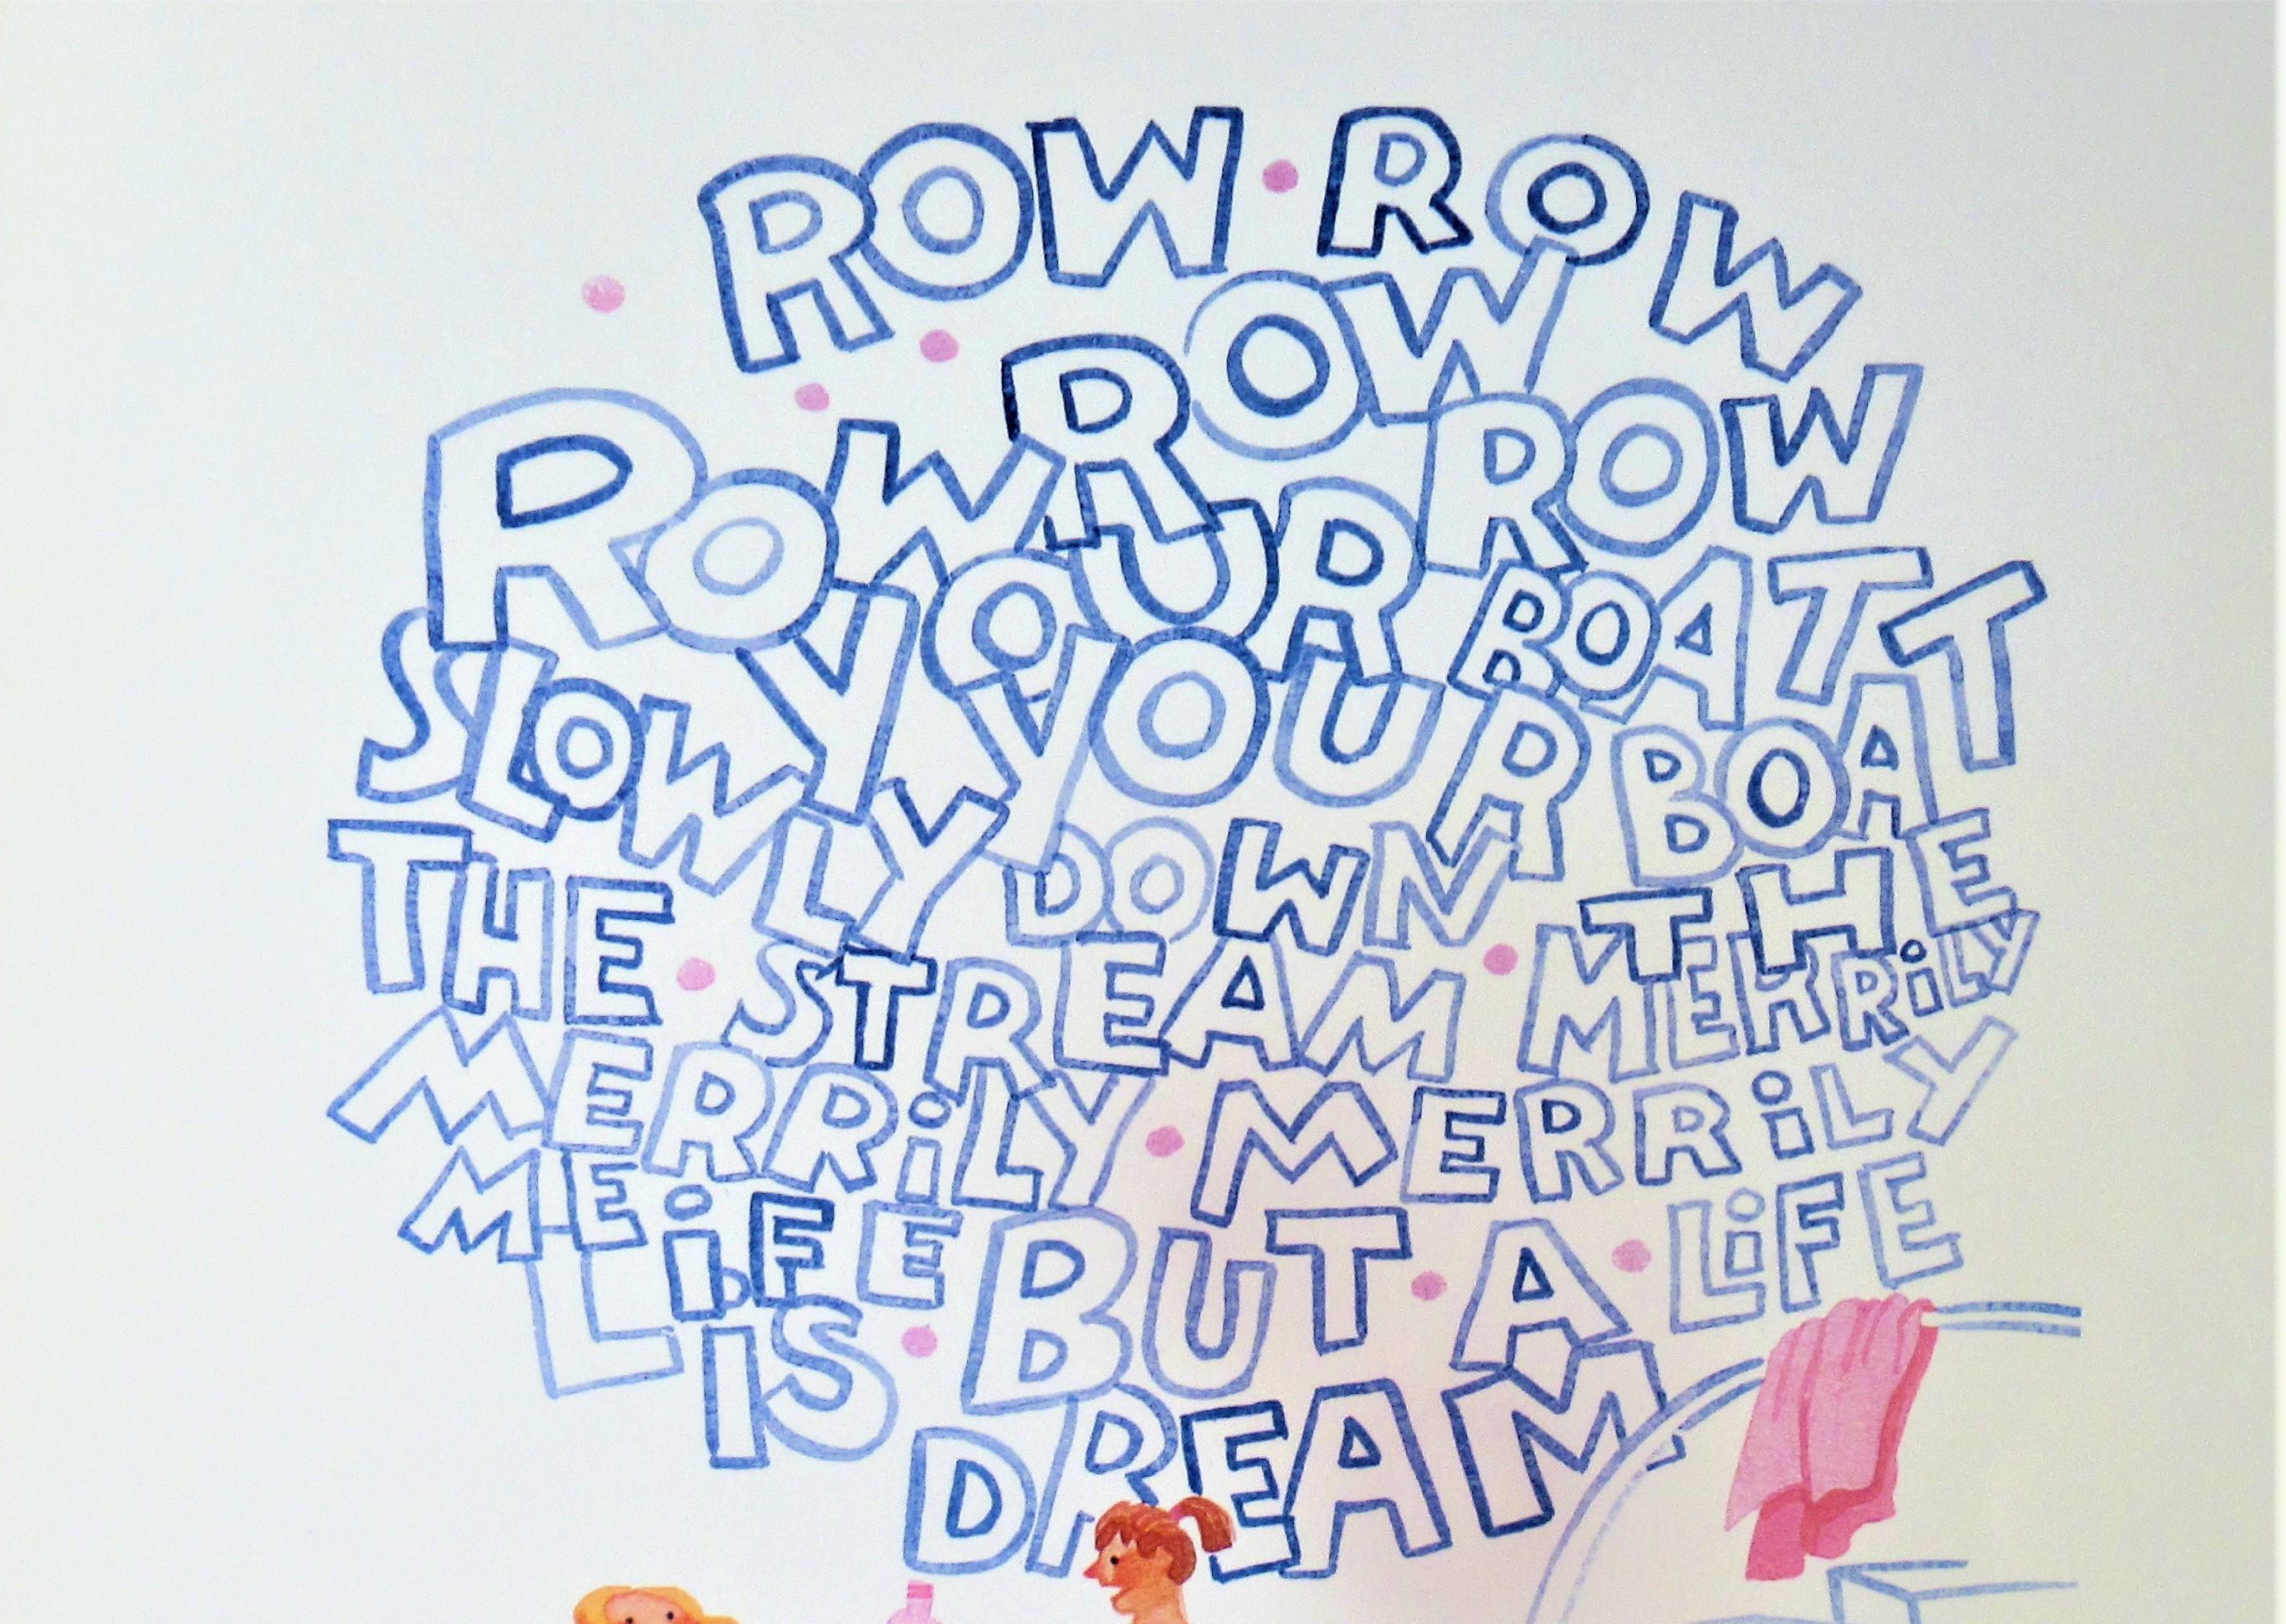 ROW ROW
ROW ROW ROW
YOUR BOAT T
SLOWLY YOUR BOAT
THE DOWN THE
STREAM MERRILY
MERRiLY MERRiLY
ME LiFE BUT A LiFE
IS
DREAM